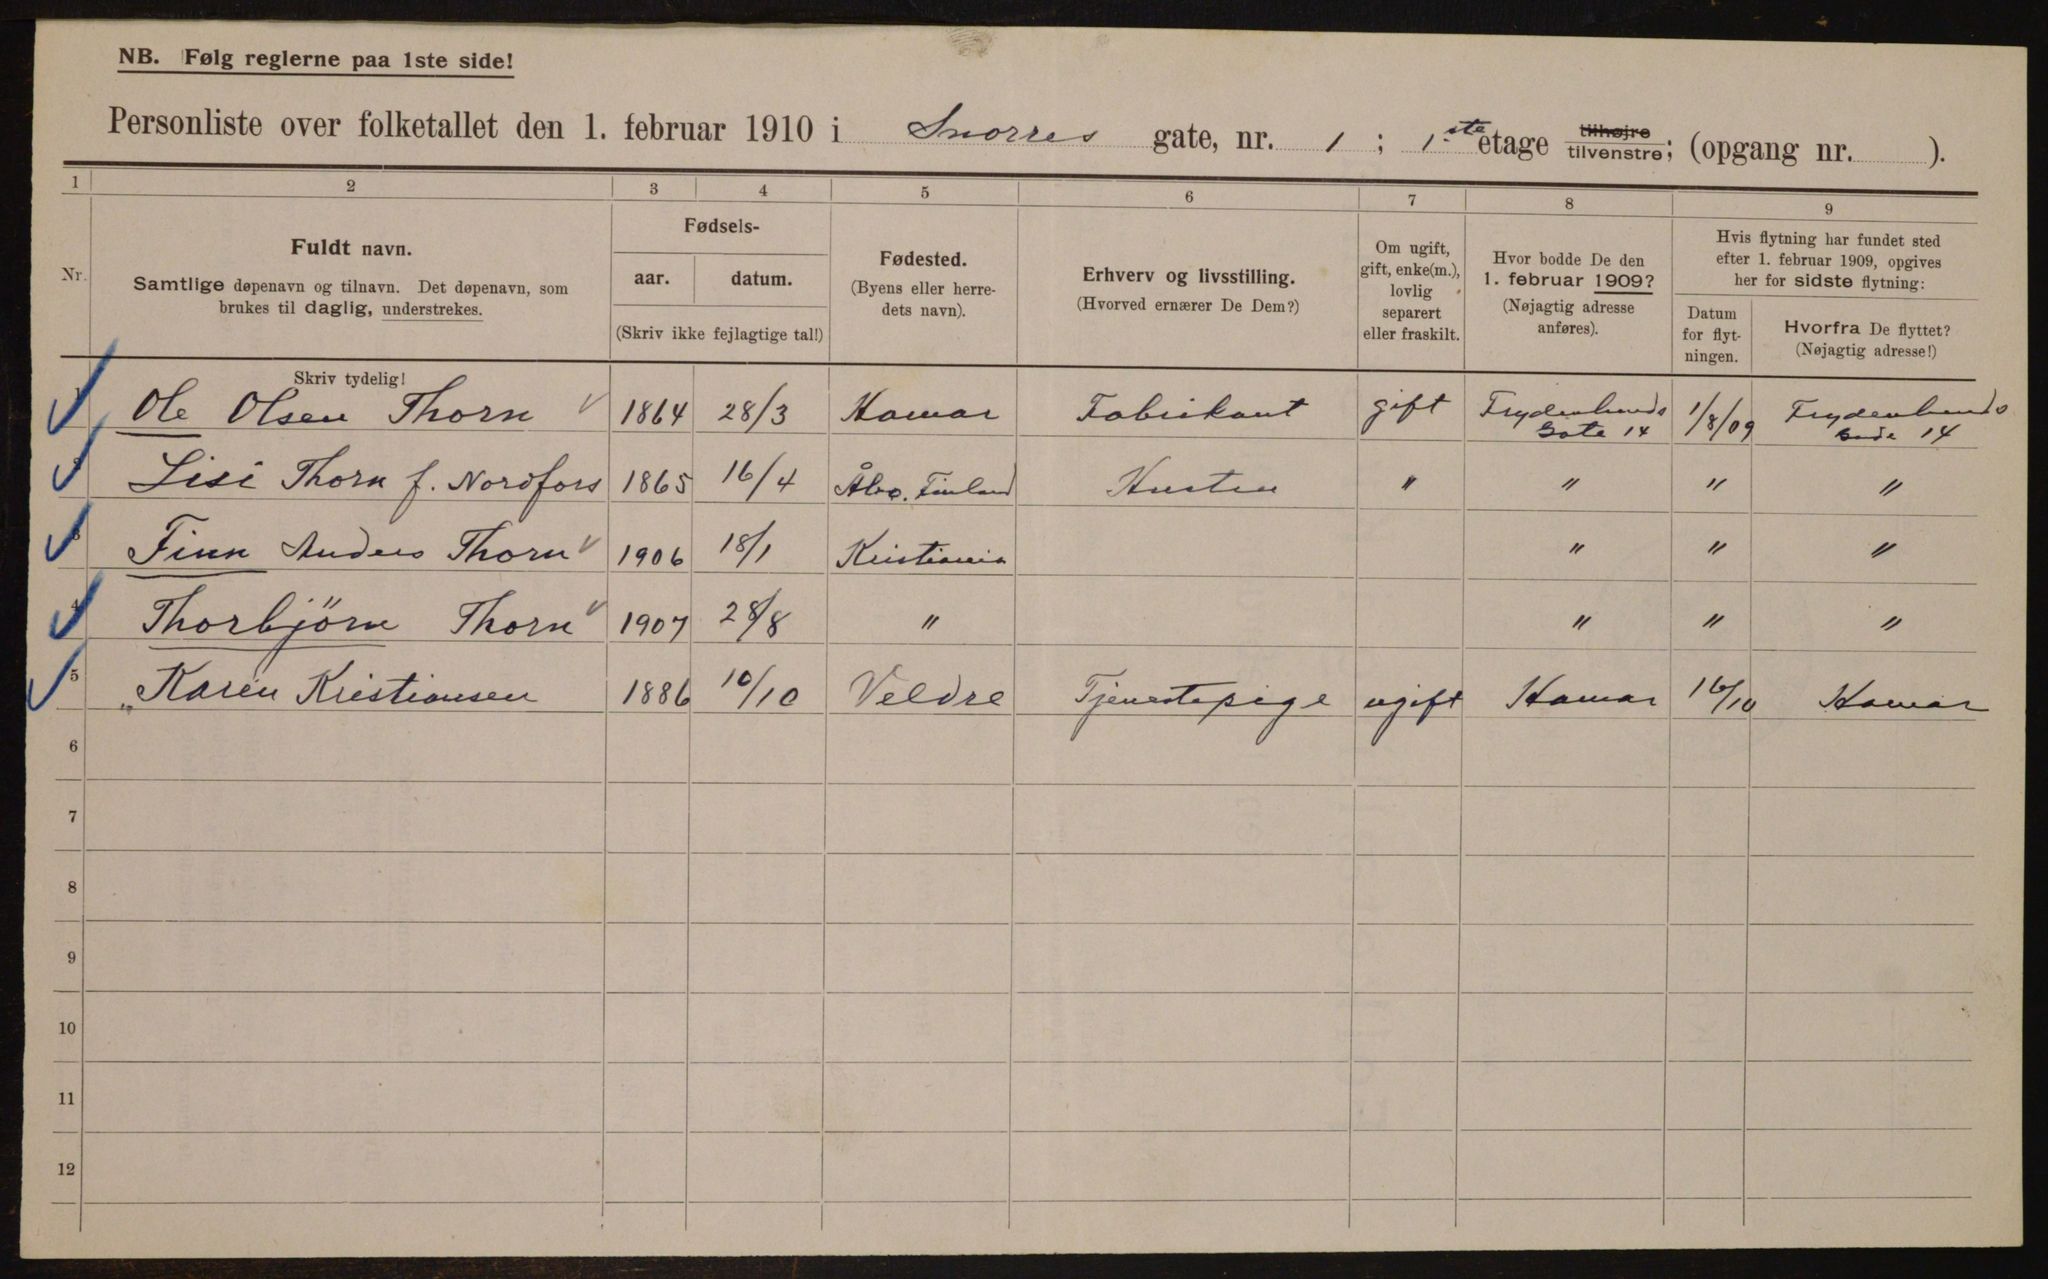 NB. Følg reglerne paa 1ste side!
Personliste over folketallet den 1. februar 1910 i Snorres gate, nr. 1 ; 1ste etage tilhøjre tilvenstre; (opgang nr. ).
1 2 3 4 5 6 7 8 9
Nr.
Fuldt navn.
Samtlige døpenavn og tilnavn. Det døpenavn, som
brukes til daglig, understrekes.
Skriv tydelig!
Fødsels-
aar. datum.
(Skriv ikke fejlagtige tal!)
Fødested.
(Byens eller herre-
dets navn).
Erhverv og livsstilling.
(Hvorved ernærer De Dem?)
Om ugift,
gift, enke(m.),
lovlig
separert
eller fraskilt.
Hvor bodde De den
1. februar 1909?
(Nøjagtig adresse
anføres).
Hvis flytning har fundet sted
efter 1. februar 1909, opgives
her for sidste flytning:
Datum
for flyt-
ningen.
Hvorfra De flyttet?
(Nøjagtig adresse!)
1 Ole Olsen Thorn 1864 28/3 Hamar Fabrikant gift Frydenlunds Gate 14 1/8/09 Frydenlunds Gade 14
2 Lisi Thorn f. Nordfors 1865 16/4 Åbo. Finland Hustru " " " "
3 Finn Anders Thorn 1906 18/1 Kristiania " " "
4 Thorbjörn Thorn 1907 28/8 " " " "
5 Karen Kristiansen 1886 10/10 Veldre Tjenestepige ugift Hamar 16/10 Hamar
6
7
8
9
10
11
12